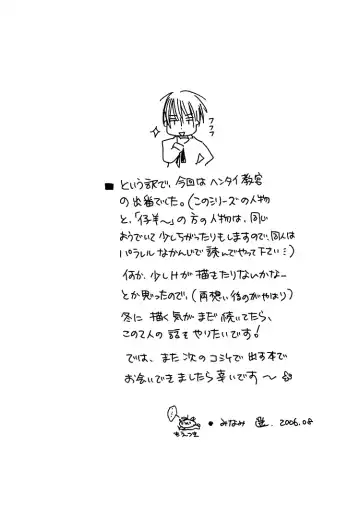 フフフ
■ という訳で、今回はヘンタイ教官
の出番でした。(このシリーズの人物
と、「仔羊〜」の方の人物は、同じ
ようでいて少しちがったりもしますので、同人は
パラレルなかんじで読んでやって下さい…)
何か、少しHが描きたりないかなー
とか思ったので、(両想い後のがやはり)
冬に描く気がまだ続いてたら、
この2人の話をやりたいです!
では、また次のコミケで出す本で
お会いできましたら幸いです〜
もえつき
● みなみ 遥. 2006.08